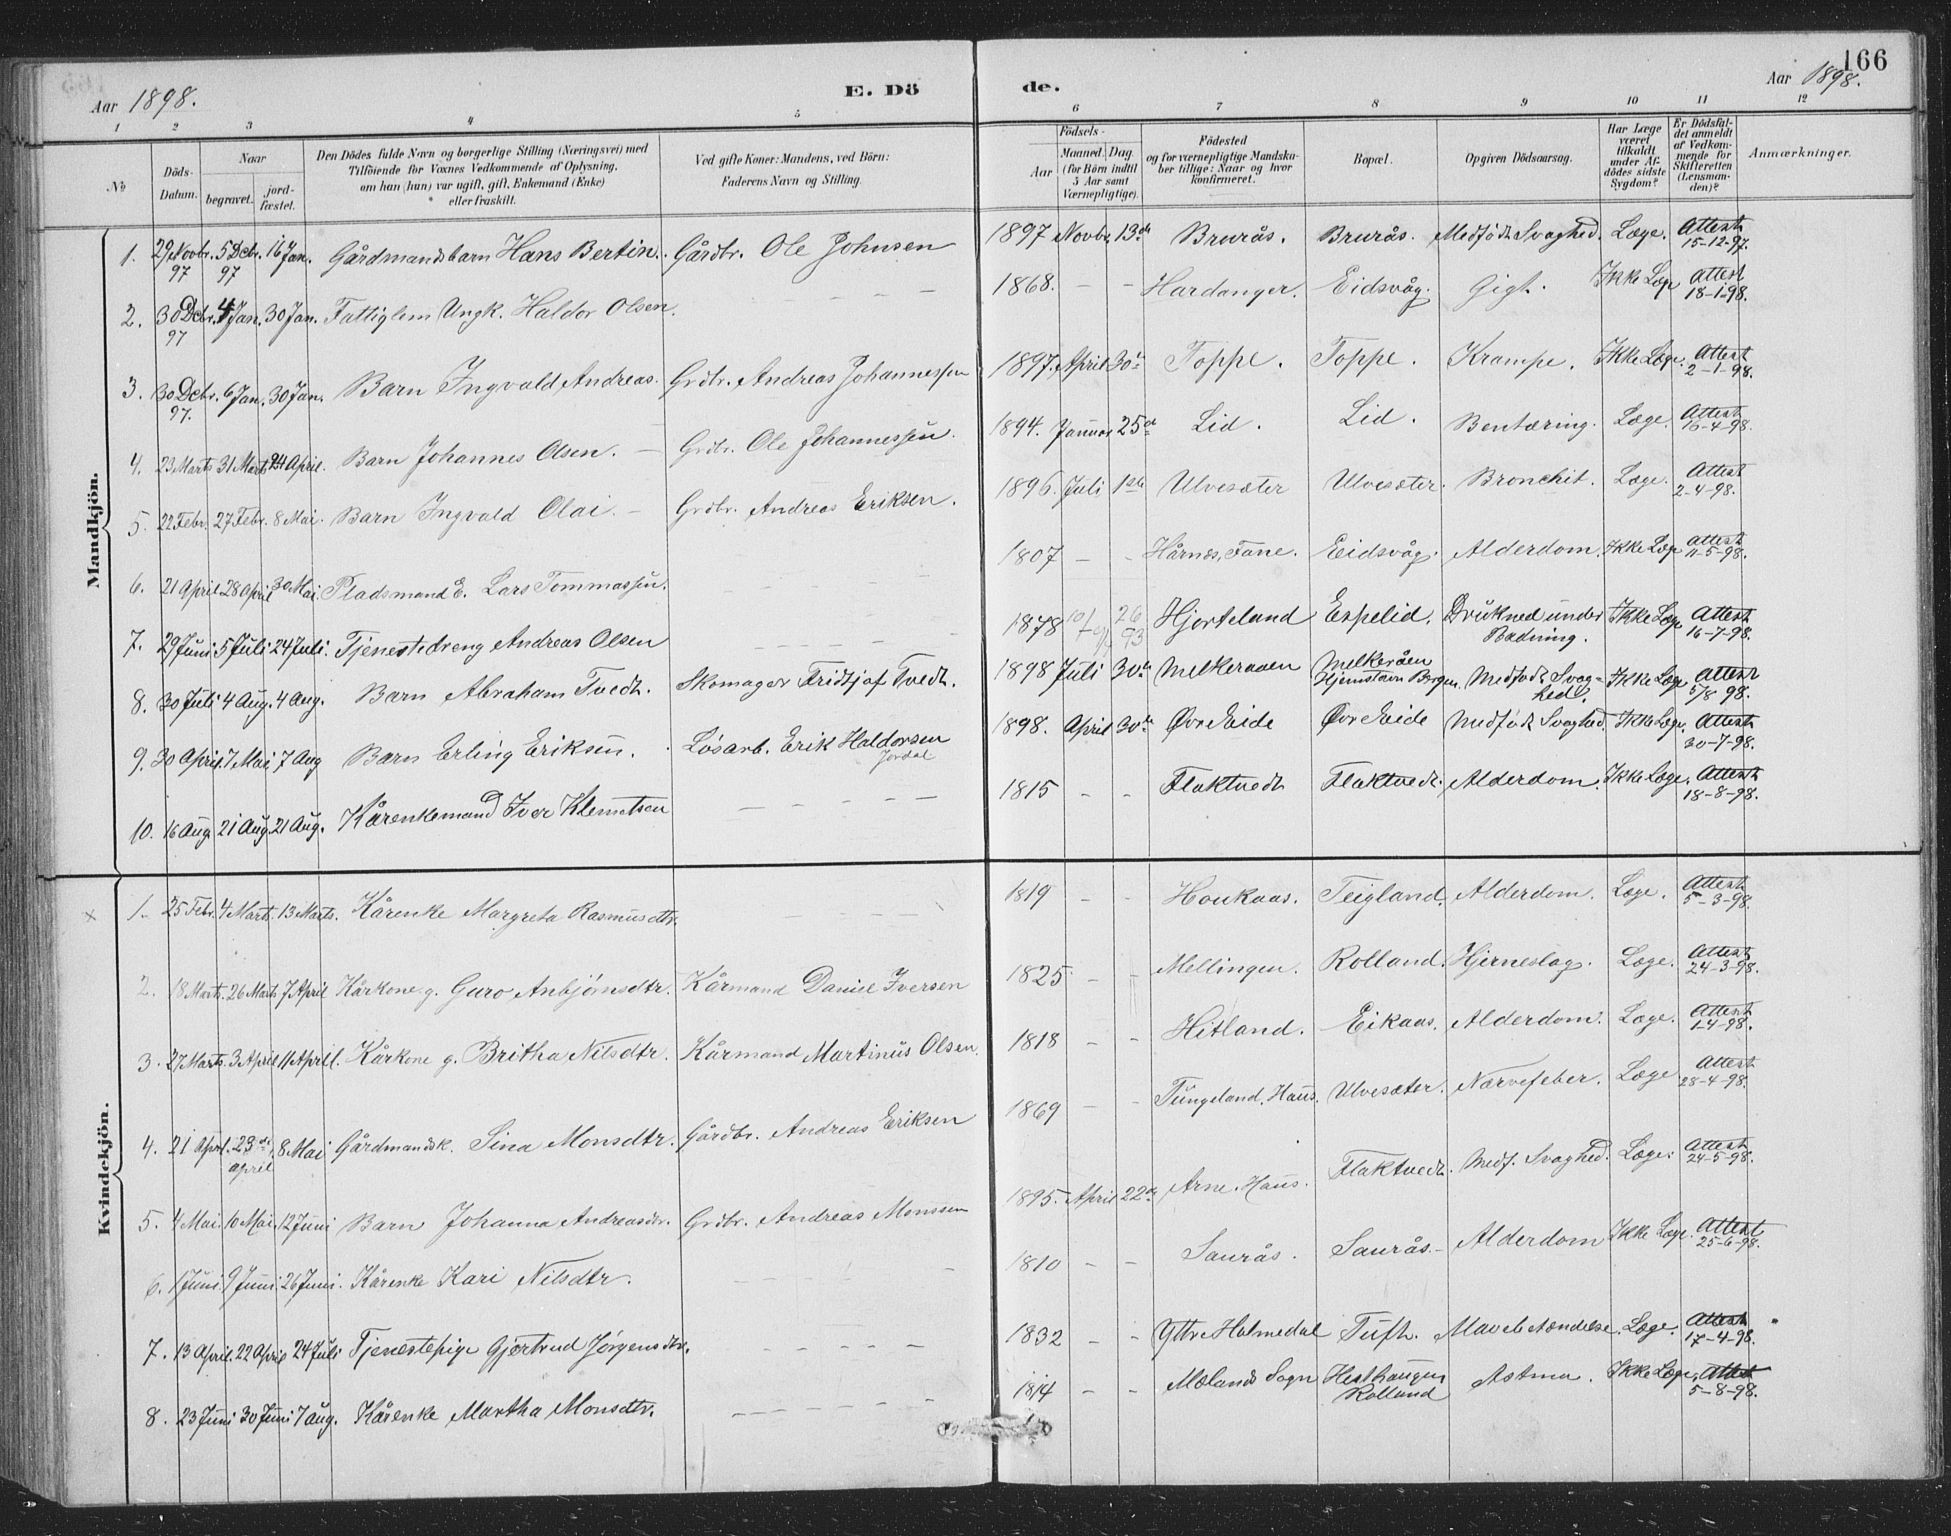 166
Aar 1898. E. Dö de. Aar 1898.
1 2 3 4 5 6 7 8 9 10 11 12
№
Döds-Datum.
Naar
begravet.
jord-fæstet.
Den Dödes fulde Navn og borgerlige Stilling (Næringsvei) med
Tilföiende for Voxnes Vedkommende af Oplysning,
om han (hun) var ugift, gift, Enkemand (Enke)
eller fraskilt.
Ved gifte Koner: Mandens, ved Börn:
Faderens Navn og Stilling.
Födsels-
Aar
Maaned. Dag
(for Börn indtil
5 Aar samt
Værnepligtige).
Födested
og for værnepligtige Mandskaber tillige: Naar og hvor
konfirmeret.
Bopæl.
Opgiven Dödsaarsag.
Har Læge
været
tilkaldt
under Af-
dödes sidste
Sygdom?
Er Dödsfal-
det anmeldt
af Vedkom-
mende for
Skifteretten
(Lensman-
den)?
Anmærkninger.
Mandkjön.
1. 29 Novbr. 97 5 Dcbr. 97 16 Jan. Gårdmandsbarn Hans Bertin. Gårdbr. Ole Johnsen 1897 Novbr 13de Brurås. Brurås. Medfødt Svaghed. Læge. Attest 15-12-97.
2. 30 Dcbr. 97 4 Jan. 30 Jan. Fattiglem Ungk. Haldor Olsen. - - - 1868. - - Hardanger. Eidsvåg. Gigt. Ikke Læge Attest 18-1-98.
3. 30 Dcbr. 97. 6 Jan. 30 Jan. Barn Ingvald Andreas. Grdbr. Andreas Johannessen 1897. April 30te Toppe. Toppe. Krampe. Ikke Læge. Attest 2-1-98.
4. 23 Marts 31 Marts 24 April. Barn Johannes Olsen. - Grdbr. Ole Johannessen. 1894. Januar 25de Lid. Lid. Bentæring. Læge. Attest 16-4-98.
5. 22 Febr. 27 Febr. 8 Mai. Barn Ingvald Olai. - Grdbr. Andreas Eriksen. 1896. Juli 1ste Ulvesæter Ulvesæter. Bronchit. Læge. Attest 2-4-98.
6. 21 April 28 April 30 Mai. Pladsmand E. Lars Tommassen. - - - 1807 - - Hårnes, Fane. Eidsvåg. Alderdom. Ikke Læge Attest 11-5-98.
7. 29 Juni 5 Juli 24 Juli. Tjenestedreng Andreas Olsen - - - 1878 10/9 26 93 Hjorteland Espelid. Drukned under Badning. Ikke Læge Attest 16-7-98.
8. 30 Juli 4 Aug. 4 Aug. Barn Abraham Tvedt. Skomager Fridtjof Tvedt. 1898 Juli 30te Melkeraaen Melkeråen Hjemstavn Bergen. Medfødt Svag-hed. Ikke Læge Attest 5/8 98.
9. 30 April. 7 Mai 7 Aug Barn Erling Eriksen. Løsarb. Erik Haldorsen Jordal 1898. April 30te Øvre Eide Øvre Eide Medfødt Svaghed. Ikke Læge. Attest 30-7-98.
10. 16 Aug. 21 Aug. 21 Aug. Kårenkemand Iver Klemetsen - - - 1815 - - Flaktvedt Flaktvedt. Alderdom. Ikke Læge. Attest 18-8-98.
Kvindekjön.
× 1. 25 Febr. 4 Marts. 13 Marts. Kårenke Margreta Rasmusdtr. - - - 1819 - - Houkaas. Teigland. Alderdom. Læge. Attest 5-3-98.
2. 18 Marts. 26 Marts 7 April Kårkone g. Guro Anbjørnsdtr. Kårmand Daniel Iversen 1825 - - Mellingen. Rolland. Hjerneslag. Læge. Attest 24-3-98.
3. 27 Marts. 3 April 11 April. Kårkone g. Britha Nilsdtr. Kårmand Martinus Olsen. 1818 - - Hitland. Eikaas. Alderdom. Læge. Attest 1-4-98.
4. 21 April. 23de april 8 Mai Gårdmandsk. Sina Monsdtr. Gårdbr. Andreas Eriksen 1869 - - Tungeland, Haus. Ulvesæter. Nærvefeber. Læge Attest 28-4-98.
5. 4 Mai. 10 Mai. 12 Juni Barn Johanna Andreasdtr. Grdbr. Andreas Monssen 1895. April 22de Arne, Haus. Flaktvedt. Medf. Svaghed. Læge. Attest 24-5-98.
6. 1 Juni. 9 Juni. 26 Juni. Kårenke Kari Nilsdtr. - - - 1810 - - Saurås. Saurås. - Alderdom Ikke Læge. Attest 25-6-98.
7. 13 April. 22 April 24 Juli Tjenestepige Gjertrud Jørgensdtr. - - - 1832 - - Ytre Holmedal Tuft. Mavebetændelse. Læge. Attest 17-4-98.
8. 23 Juni 30 Juni 7 aug. Kårenke Martha Monsdtr. - - - 1814 - - Mælands Sogn Hesthaugen Rolland Astma. Ikke Læge. Attest 5-8-98.